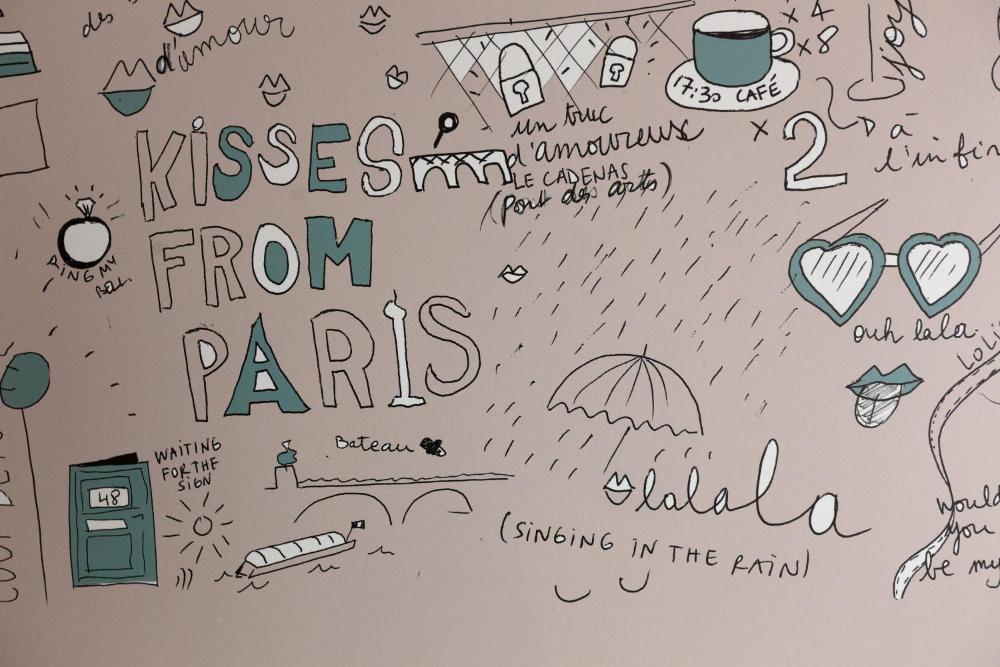 des
d'amour
17:30 CAFÉ
x 4
x 8
joy
KISSES
FROM
PARIS
un truc
d'amoureux
LE CADENAS
(Pont des arts)
x 2
à
l'infin
RING MY
BELL
ouh lala
LOLI
WAITING
FOR THE
SIGN
48
Bateau
lalalala
(SINGING IN THE RAIN)
would
you
be my